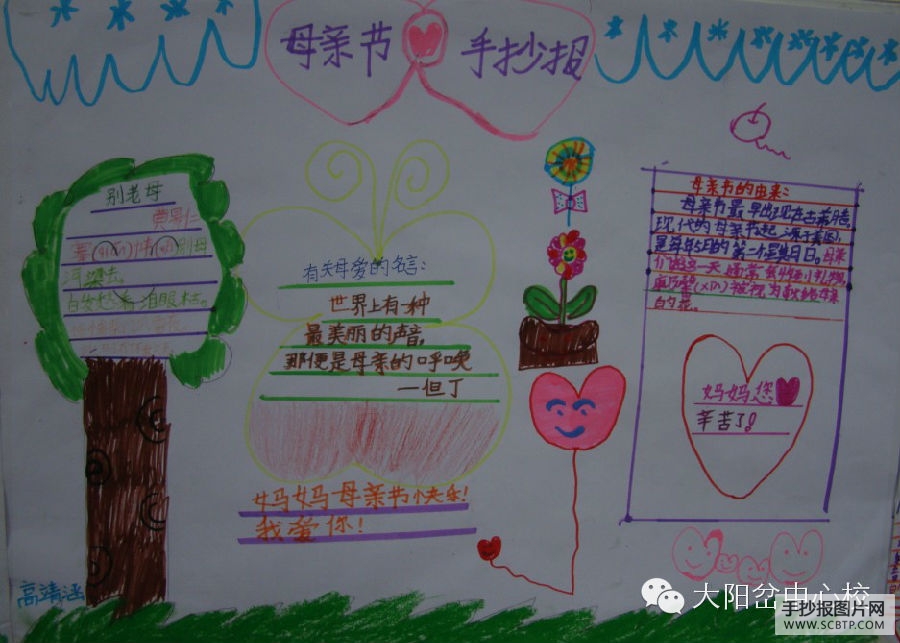 母亲节 手抄报
别老母
黄景仁
别母
河梁去。
白发愁看泪眼枯。
有关母爱的名言：
世界上有一种
最美丽的声音，
那便是母亲的呼唤
—但丁
妈妈母亲节快乐！
我爱你！
母亲节的由来：
母亲节最早出现在古希腊
现代的母亲节起源于美国，
是每年5月的第二个星期日。母亲
们在这一天通常会收到礼物，
康乃馨(xīn)被视为献给母亲
的花。
妈妈您
辛苦了！
高靖涵
大阳岔中心校
手抄报图片网
WWW.SCBTP.COM